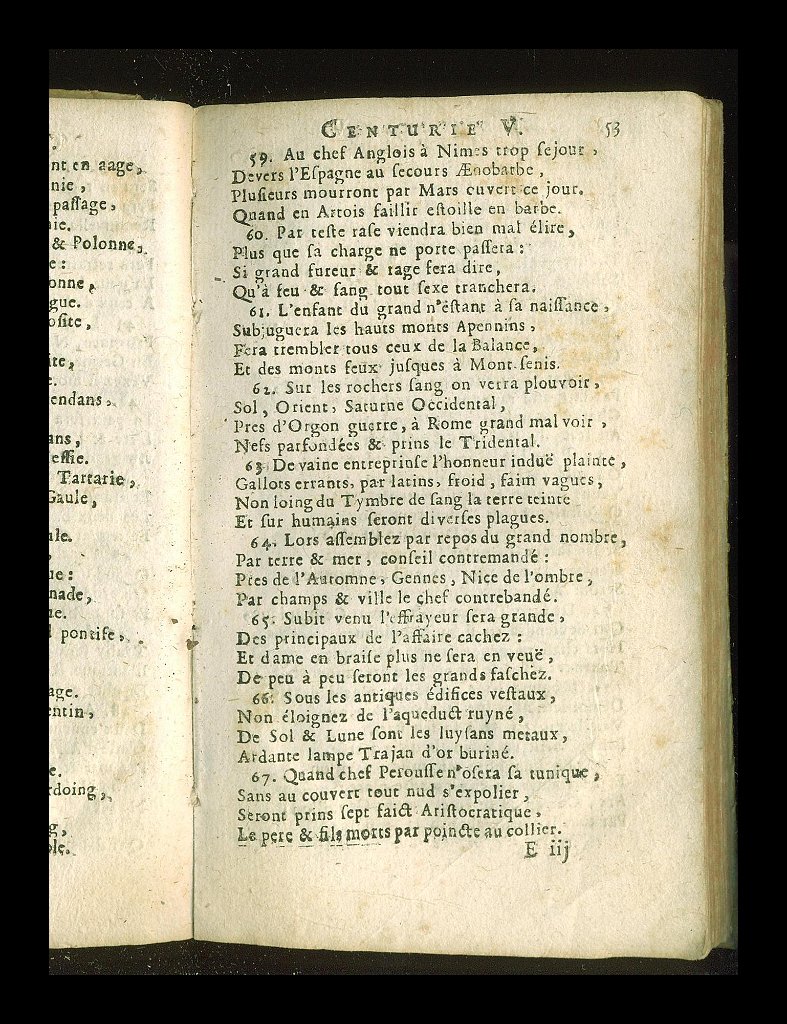 nt en aage,
nie,
paſſage,
ie.
& Polonne,
e:
onne,
gue.
oſite,
ite,
e.
endans,
ans,
eſſie.
Tartarie,
Gaule,
ule.
ue:
nade,
ue.
pontife,
age.
entin,
e.
rdoing,
g,
ole.
CENTURIE V. 53
59. Au chef Anglois à Nimes trop ſejour,
Devers l'Eſpagne au ſecours Ænobarbe,
Pluſieurs mourront par Mars ouvert ce jour.
Quand en Artois faillir eſtoille en barbe.
60. Par teſte raſe viendra bien mal élire,
Plus que ſa charge ne porte paſſera:
Si grand fureur & rage fera dire,
Qu'à feu & ſang tout ſexe tranchera.
61. L'enfant du grand n'éſtant à ſa naiſſance,
Subjuguera les hauts monts Apennins,
Fera trembler tous ceux de la Balance,
Et des monts feux juſques à Mont-ſenis.
62. Sur les rochers ſang on verra plouvoir,
Sol, Orient, Saturne Occidental,
Pres d'Orgon guerre, à Rome grand mal voir,
Nefs parfondées & prins le Tridental.
63. De vaine entreprinſe l'honneur induë plainte,
Gallots errants, par latins, froid, faim vagues,
Non loing du Tymbre de ſang la terre teinte
Et ſur humains ſeront diverſes plagues.
64. Lors aſſemblez par repos du grand nombre,
Par terre & mer, conſeil contremandé:
Pres de l'Automne, Gennes, Nice de l'ombre,
Par champs & ville le chef contrebandé.
65. Subit venu l'effrayeur ſera grande,
Des principaux de l'affaire cachez:
Et dame en braiſe plus ne ſera en veuë,
De peu à peu ſeront les grands faſchez.
66. Sous les antiques édifices veſtaux,
Non éloignez de l'aqueduct ruyné,
De Sol & Lune ſont les luyſans metaux,
Ardante lampe Trajan d'or buriné.
67. Quand chef Perouſſe n'oſera ſa tunique,
Sans au couvert tout nud s'expolier,
Seront prins ſept faict Ariſtocratique,
Le pere & fils morts par poincte au collier.
E iij